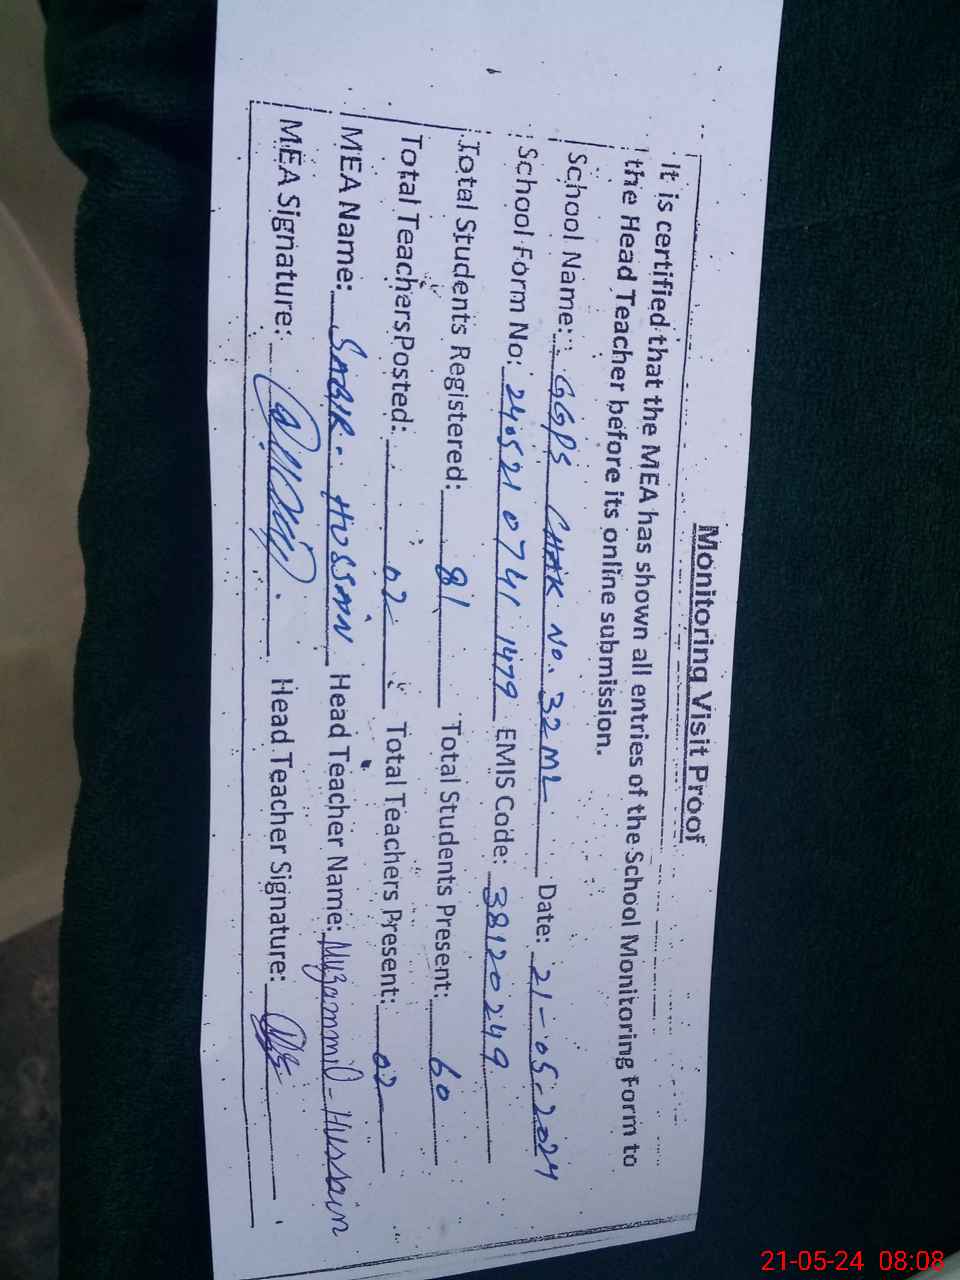 Monitoring Visit Proof
It is certified that the MEA has shown all entries of the School Monitoring Form to
the Head Teacher before its online submission.
School Name: GGPS CHAK No. 32 ML Date: 21-05-2024
School Form No: 2405210741 1479 EMIS Code: 38120249
Total Students Registered: 81 Total Students Present: 60
Total Teachers Posted: 02 Total Teachers Present: 02
MEA Name: SABIR. HUSSAIN Head Teacher Name: Muzammil - Hussain
MEA Signature: Head Teacher Signature:
21-05-24 08:08